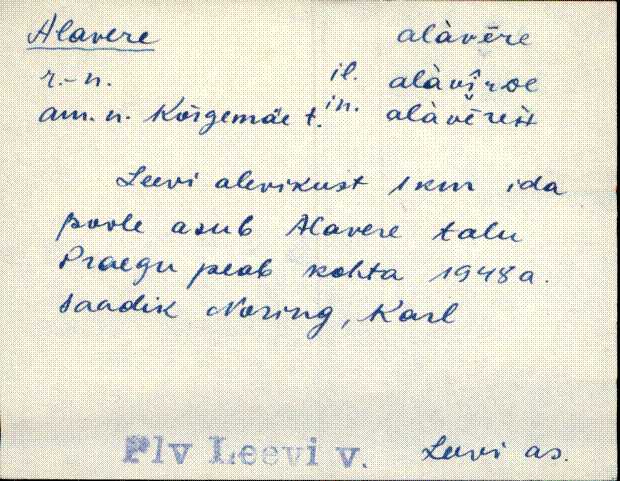 Alavere alàvēre
r.-n. il. alàvīrde
am. n. Kõrgemäe t. in. alàvērèst
Leevi alevikust 1 km ida
poole asub Alavere talu
Praegu peab kohta 1948 a.
saadik Noring, Karl
Plv Leevi v. Leevi as.